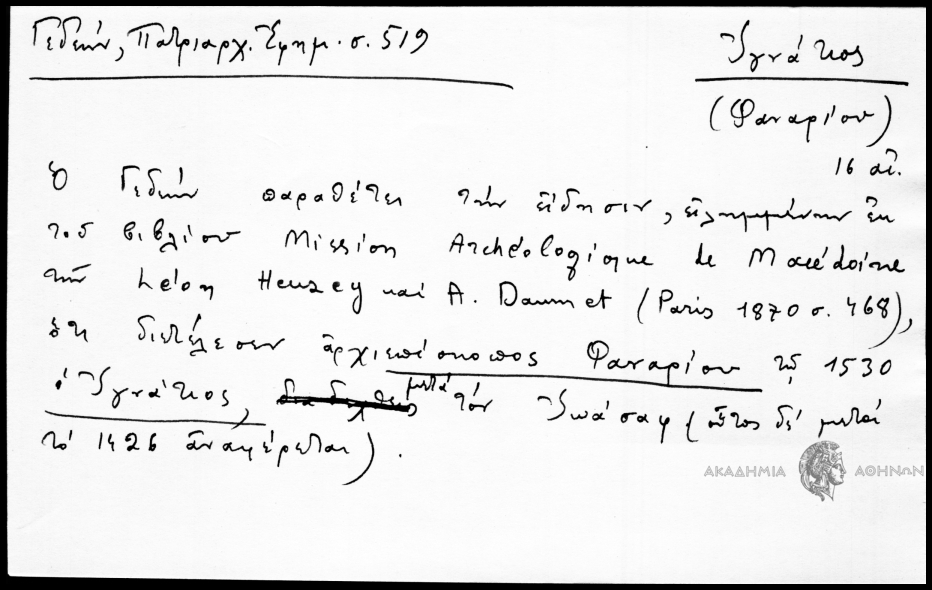 Γεδεών, Πατριαρχ. Ἐφημ. σ. 519
Ἰγνάτιος
(Φαναρίου)
16 αἰ.
Ὁ Γεδεών παραθέτει τήν εἴδησιν, εἰλημμένην ἐκ
τοῦ βιβλίου Mission Archéologique de Macédoine
τῶν Léon Heuzey καί A. Daumet (Paris 1870 σ. 468),
ὅτι διετέλεσεν ἀρχιεπίσκοπος Φαναρίου τῷ 1530
ὁ Ἰγνάτιος, διαδεχθείς μετά τόν Ἰωάσαφ (οὗτος δέ μετά
τό 1426 ἀναφέρεται).
ΑΚΑΔΗΜΙΑ ΑΘΗΝΩΝ